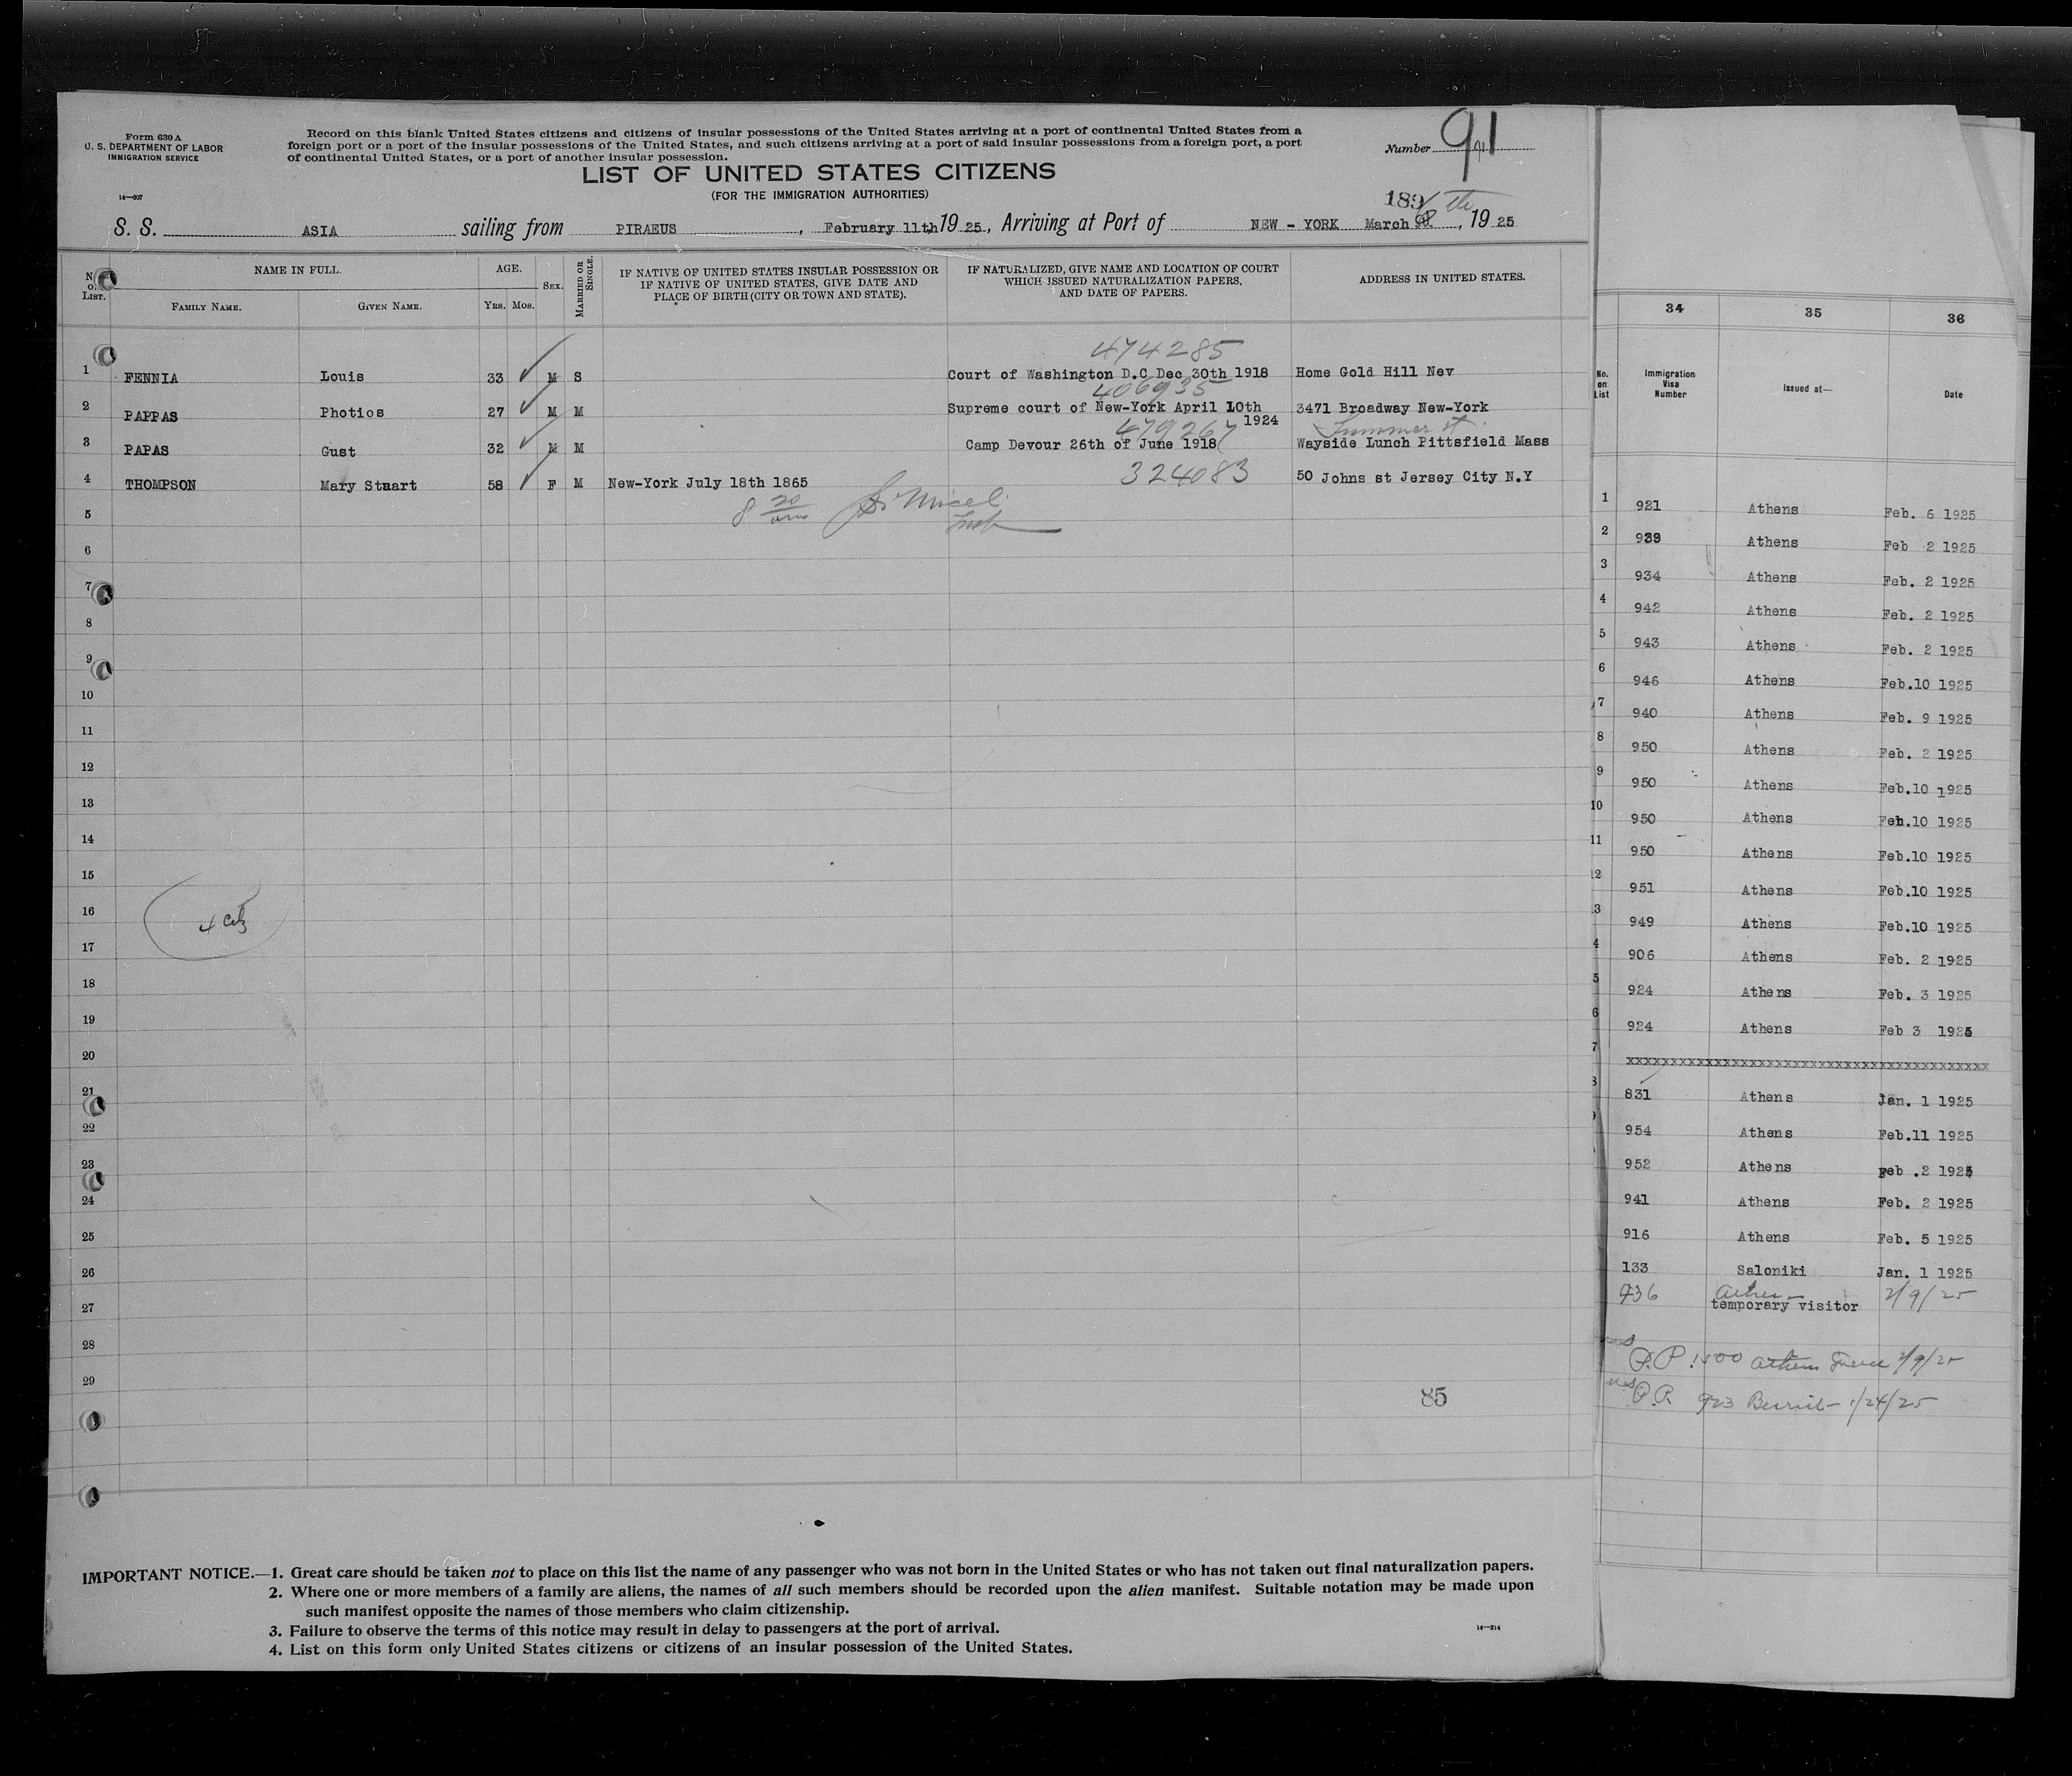 Form 630 A
U. S. DEPARTMENT OF LABOR
IMMIGRATION SERVICE
14—607
Record on this blank United States citizens and citizens of insular possessions of the United States arriving at a port of continental United States from a
foreign port or a port of the insular possessions of the United States, and such citizens arriving at a port of said insular possessions from a foreign port, a port
of continental United States, or a port of another insular possession.
Number 91
LIST OF UNITED STATES CITIZENS
(FOR THE IMMIGRATION AUTHORITIES)
S. S. ASIA sailing from PIRAEUS, February 11th, 19 25, Arriving at Port of NEW - YORK March 8th, 19 25
No. LIST.
NAME IN FULL.
FAMILY NAME.
GIVEN NAME.
AGE.
YRS. MOS.
SEX.
MARRIED OR SINGLE.
IF NATIVE OF UNITED STATES INSULAR POSSESSION OR
IF NATIVE OF UNITED STATES, GIVE DATE AND
PLACE OF BIRTH (CITY OR TOWN AND STATE).
IF NATURALIZED, GIVE NAME AND LOCATION OF COURT
WHICH ISSUED NATURALIZATION PAPERS,
AND DATE OF PAPERS.
ADDRESS IN UNITED STATES.
474285
1 FENNIA Louis 33 M S Court of Washington D.C Dec 30th 1918 Home Gold Hill Nev
406935
2 PAPPAS Photios 27 M M Supreme court of New-York April 10th 1924 3471 Broadway New-York
479267 Summer st.
3 PAPAS Gust 32 M M Camp Devour 26th of June 1918 Wayside Lunch Pittsfield Mass
324083
4 THOMPSON Mary Stuart 58 F M New-York July 18th 1865 50 Johns st Jersey City N.Y
5
8 20 am
6
7
8
9
10
11
12
13
14
15
16
4 citz
17
18
19
20
21
22
23
24
25
26
27
28
29
85
IMPORTANT NOTICE.—1. Great care should be taken not to place on this list the name of any passenger who was not born in the United States or who has not taken out final naturalization papers.
2. Where one or more members of a family are aliens, the names of all such members should be recorded upon the alien manifest. Suitable notation may be made upon
such manifest opposite the names of those members who claim citizenship.
3. Failure to observe the terms of this notice may result in delay to passengers at the port of arrival.
4. List on this form only United States citizens or citizens of an insular possession of the United States.
14—214
34 35 36
No. on List
Immigration Visa Number
Issued at—
Date
1 921 Athens Feb. 6 1925
2 939 Athens Feb 2 1925
3 934 Athens Feb. 2 1925
4 942 Athens Feb. 2 1925
5 943 Athens Feb. 2 1925
6 946 Athens Feb.10 1925
7 940 Athens Feb. 9 1925
8 950 Athens Feb. 2 1925
9 950 Athens Feb.10 1925
10 950 Athens Feb.10 1925
11 950 Athens Feb.10 1925
12 951 Athens Feb.10 1925
3 949 Athens Feb.10 1925
4 906 Athens Feb. 2 1925
5 924 Athens Feb. 3 1925
6 924 Athens Feb 3 1925
7 xxxxxxxxxxxxxxxxxxxxxxxxxxxxxxxxxxxxxxxxx
831 Athens Jan. 1 1925
954 Athens Feb.11 1925
952 Athens Feb .2 1925
941 Athens Feb. 2 1925
916 Athens Feb. 5 1925
133 Saloniki Jan. 1 1925
936 Athens 2/9/25
temporary visitor
P.P. 1500 Athens Greece 2/9/25
P.P. 923 1/24/25